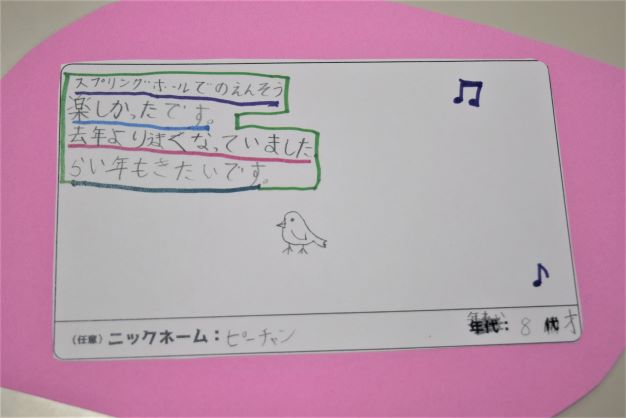 スプリングホールでのえんそう
楽しかったです。
去年より速くなっていました
らい年もきたいです。
(任意) ニックネーム: ピーチャン
年代: 8 代 才